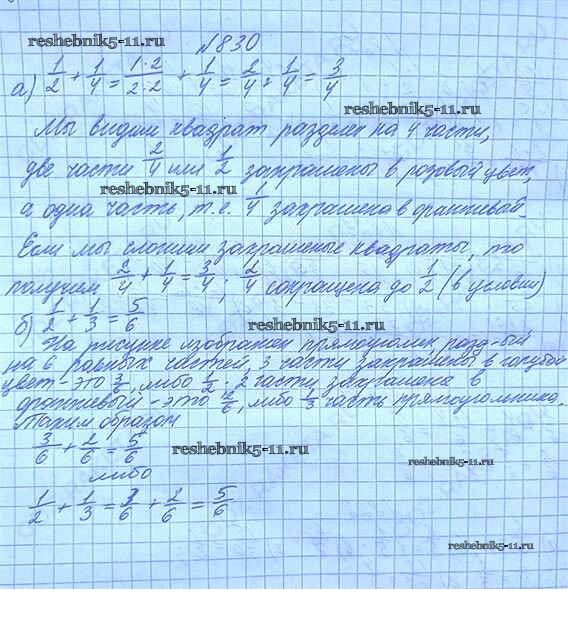 reshebnik5-11.ru
№830
а) 1/2 + 1/4 = 1·2/2·2 + 1/4 = 2/4 + 1/4 = 3/4
reshebnik5-11.ru
Мы видим квадрат разделен на 4 части,
две части 2/4 или 1/2 закрашены в розовый цвет,
reshebnik5-11.ru
а одна часть, т.е. 1/4 закрашена в оранжевый.
Если мы сложим закрашеные квадраты, то
получим 2/4 + 1/4 = 3/4; 2/4 сокращена до 1/2 (в условии)
б) 1/2 + 1/3 = 5/6
reshebnik5-11.ru
На рисунке изображен прямоугольник разд-ый
на 6 равных частей, 3 части закрашены в голубой
цвет - это 3/6, либо 1/2; 2 части закрашена в
оранжевый - это 2/6, либо 1/3 часть прямоугольника.
Таким образом
3/6 + 2/6 = 5/6
reshebnik5-11.ru
либо
reshebnik5-11.ru
1/2 + 1/3 = 3/6 + 2/6 = 5/6
reshebnik5-11.ru